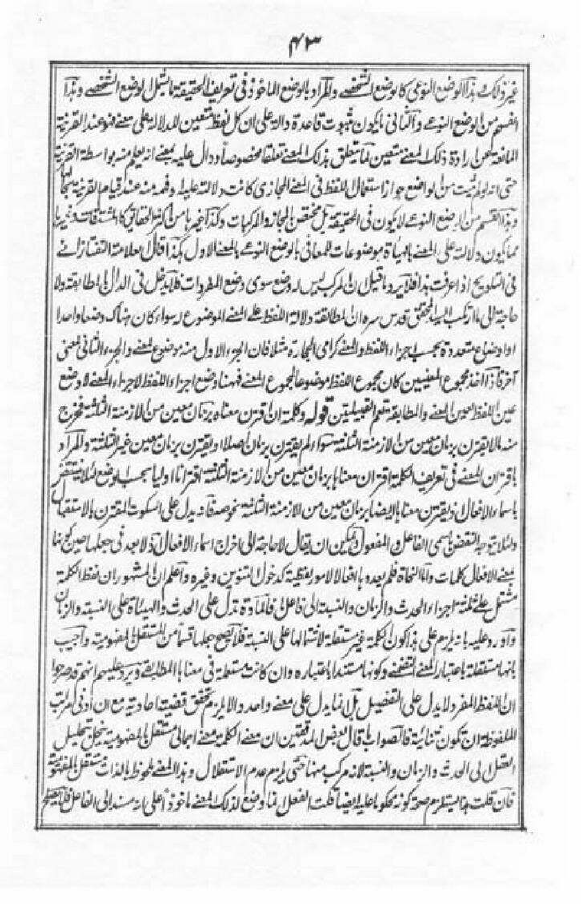 ۴۳
غير ذلك هذا الوضع النوعي كالوضع الشخصي والمراد بالوضع الماخوذ في تعريف الحقيقة ما يشمل الوضع الشخصي وهذا
القسم من الوضع النوعي والثاني ما يكون بثبوت قاعدة دالة على ان كل لفظ متعين للدلالة على معنے فهو عند القرينة
المانعة عن ارادة ذلك المعنے متعين لما يتعلق بذلك المعنے تعلقا مخصوصا ودال عليه بمعنے انه يفهم منه بواسطة القرينة
حتى انه لو لم يثبت من الواضع جواز استعمال اللفظ في المعنے المجازي كانت دلالة عليه وفهمه منه عند قيام القرينة بحالها
وهذا القسم من الوضع النوعے لا يكون في الحقيقة بل مختص بالمجاز والمركبات وكذا اكثر الحقائق كالمشتقات وغيرها
مما يكون دلالته على المعنے بالهيأة موضوعات للمعاني بالوضع النوعے بالمعنے الاول هكذا قال العلامة التفتازانے
في التلويح اذا عرفت هذا فلا يرد ما قيل ان المركب ليس له وضع سوى وضع المفردات فلا يدخل في الدال بالمطابقة ولا
حاجة الى ما ارتكب السيد المحقق قدس سره ان المطابقة دلالة اللفظ على المعنے الموضوع له سواء كان هناك وضعا واحدا
او اوضاع متعددة بحسب اجزاء اللفظ والمعنے كرامي الحجارة مثلا فان الجزء الاول منه موضوع لمعنے والجزء الثاني لمعنى
آخر فاذا اخذ مجموع المعنيين كان مجموع اللفظ موضوعا لمجموع المعنے فههنا وضع اجزاء اللفظ لاجزاء المعنے لا وضع
عين اللفظ لعين المعنے والمطابقة تعم القبيلتين قوله وكلمة ان اقترن معناه بزمان معين من الازمنة الثلثة فخرج
منه ما لا يقترن بزمان معين من الازمنة الثلثة سواء لم يقترن بزمان اصلا او يقترن بزمان معين غير الثلثة والمراد
باقتران المعنے في تعريف الكلمة اقتران معناها بزمان معين من الازمنة الثلثة اقترانا اوليا بحسب الوضع لئلا ينتقض
باسماء الافعال اذ يقترن معناها ايضا بزمان معين من الازمنة الثلثة نحو صه فانه يدل على السكوت المقترن بالاستقبال
ولئلا يتوجه النقض باسمي الفاعل والمفعول ويمكن ان يقال لا حاجة الى اخراج اسماء الافعال اذ لا بعد في جعلها حين كونها
بمعنے الافعال كلمات واما النحاة فلم يعدوها افعالا لامور لفظية كدخول التنوين وغيره واعلم ان المشهور ان لفظ الكلمة
مشتمل على ثلثة اجزاء الحدث والزمان والنسبة الى فاعل ما فالمادة تدل على الحدث والهيأة على النسبة والزمان
واورد عليه بانه يلزم على هذا كون الكلمة غير مستقلة لاشتمالها على النسبة فلا يصح جعلها قسما من المستقل بالمفهومية واجيب
بانها مستقلة باعتبار المعنے التضمنے وكونها مسندا باعتباره وان كانت مستقلة في معناها المطابقے ويرد عليه انهم قد صرحوا
ان اللفظ المفرد لا يدل على التفصيل بل انما يدل على معنے واحد والا يلزم تحقق قضية احادية مع ان ادنى مراتب
الملفوظة ان تكون ثنائية فالصواب ما قال بعض المدققين ان معنے الكلمة معنے اجمالي مستقل بالمفهومية ينحل بتحليل
العقل الى الحدث والزمان والنسبة لا انه مركب منها حتى يلزم عدم الاستقلال وهذا المعنے ملحوظ بالذات مستقل بالمفهومية
فان قلت هذا يستلزم صحة كونه محكوما عليه ايضا قلت الفعل انما وضع لذلك المعنے ماخوذا على انه مسند الى الفاعل فلا يصلح